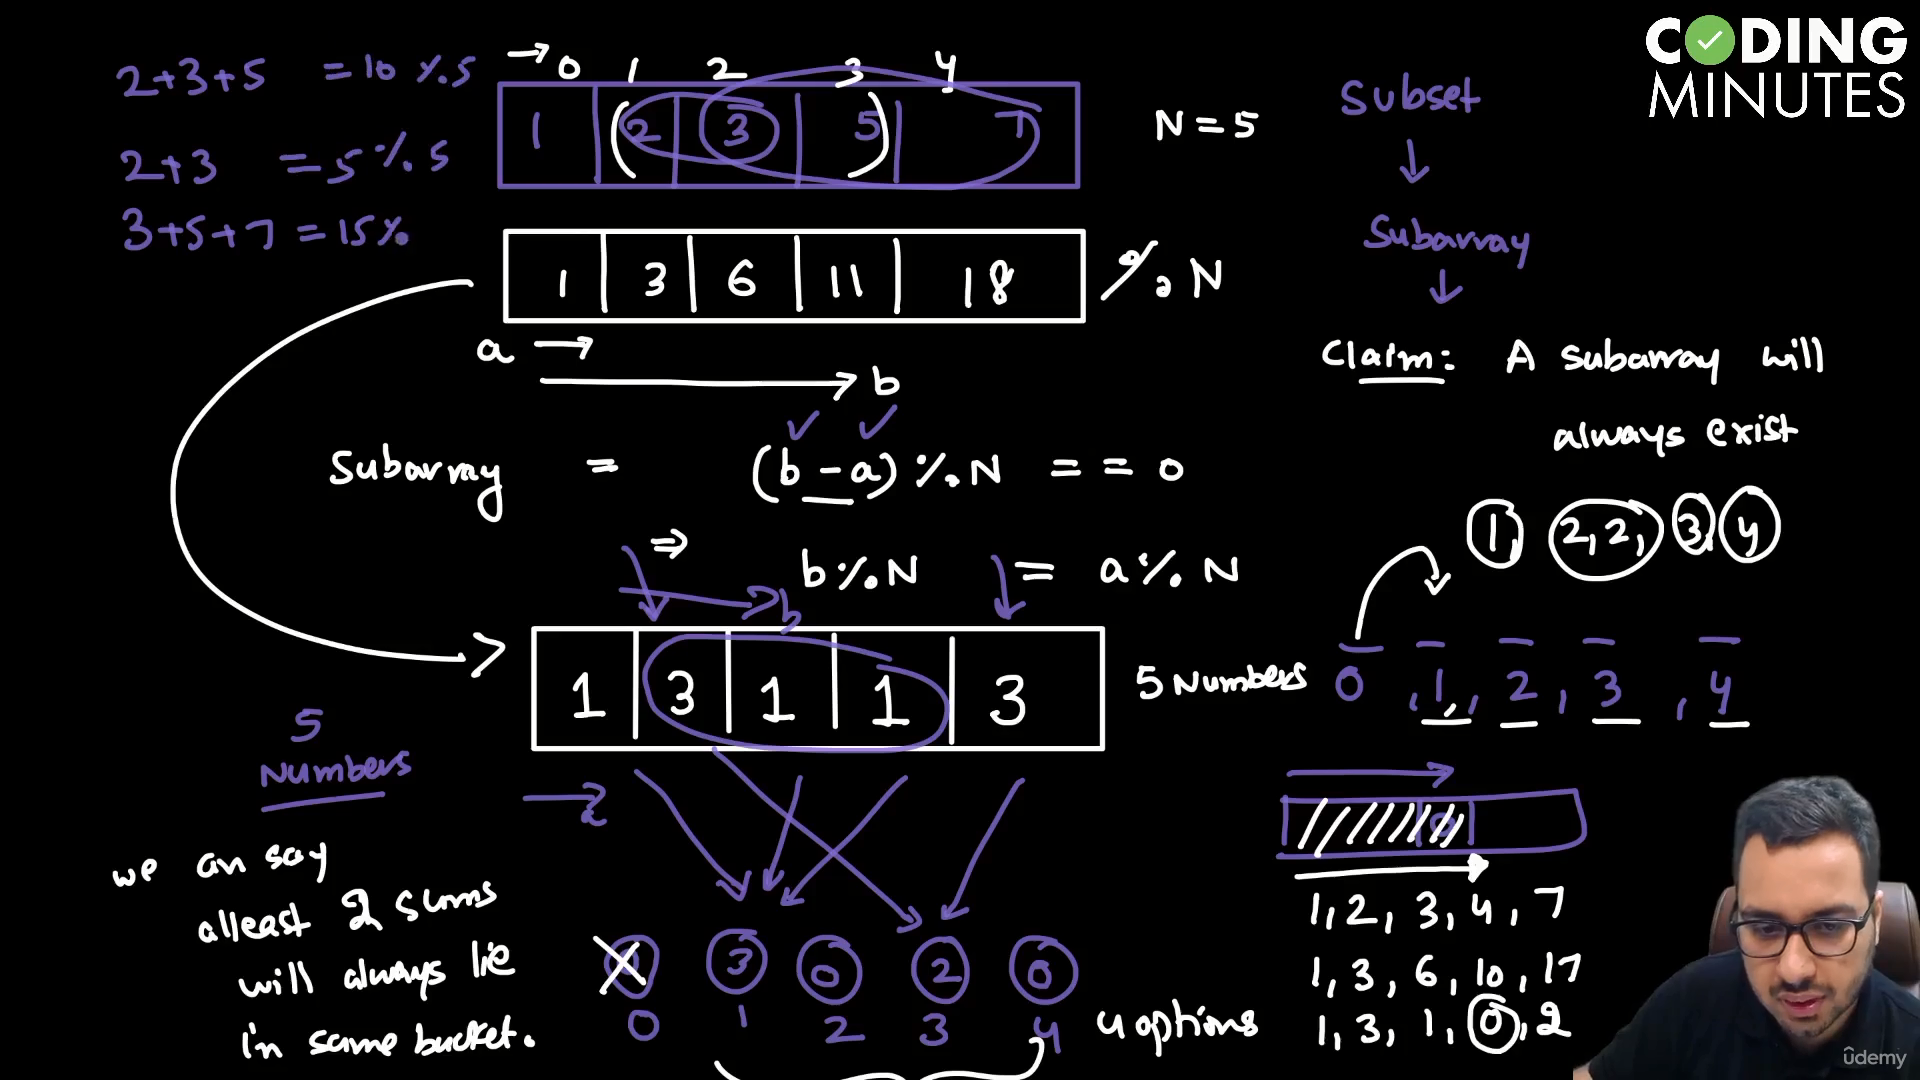 CODING
MINUTES
2+3+5 = 10 %5
2+3 = 5 % 5
3+5+7 = 15%
→ 0 1 2 3 4
1 (2 3 5) 7
N = 5
1 3 6 11 18
% N
a →
→ b
Subarray = (b - a) % N == 0
⇒ b % N = a % N
b
1 3 1 1 3
5 Numbers
5
Numbers
we an say
atleast 2 sums
will always lie
in same bucket.
0 3 0 2 0
0 1 2 3 4
4 options
Subset
↓
Subarray
↓
Claim: A subarray will
always exist
1, 2, 2, 3, 4
0, 1, 2, 3, 4
0
1, 2, 3, 4, 7
1, 3, 6, 10, 17
1, 3, 1, 0, 2
ûdemy